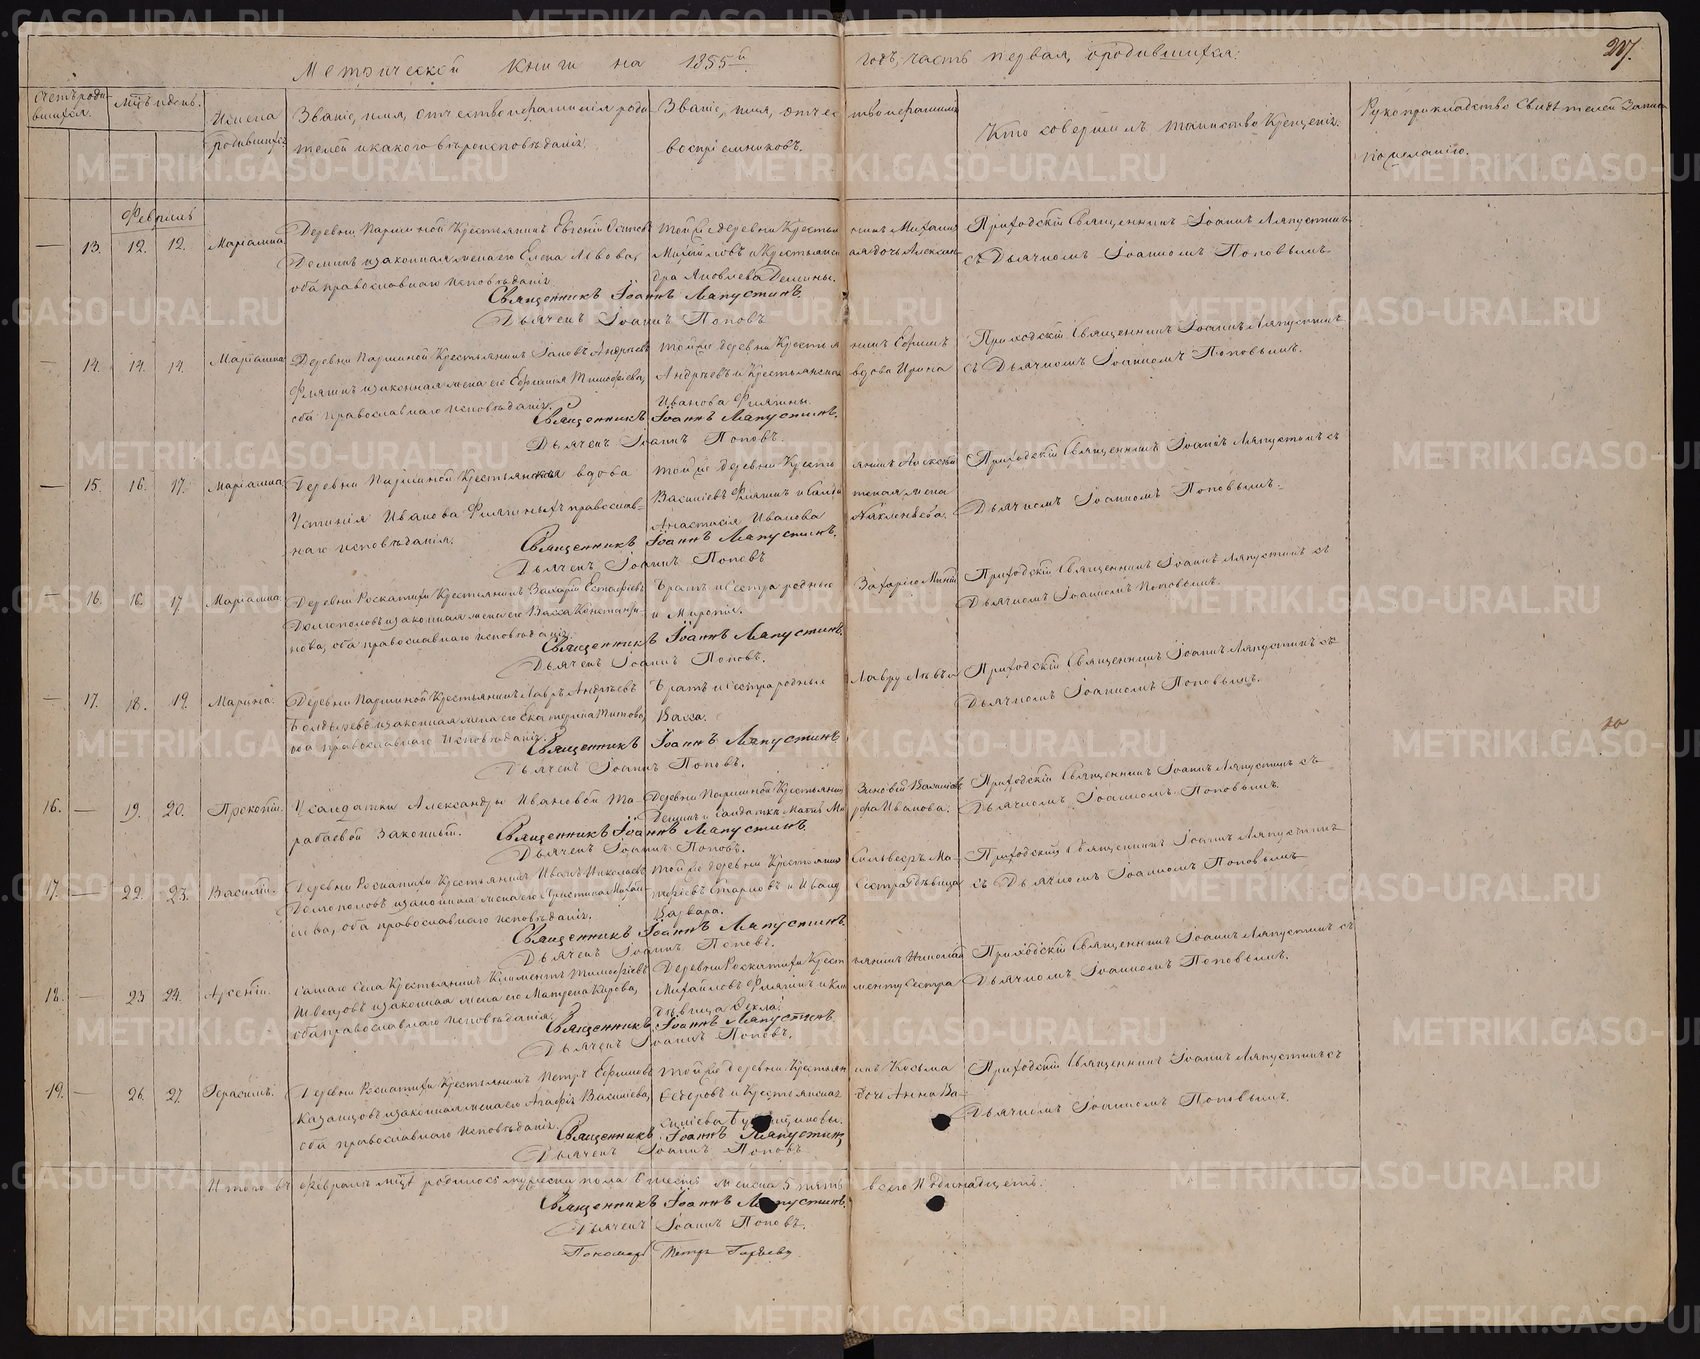 Метрической книги на 1855й годъ, часть первая, о родившихся:
217.
Счетъ родившихся.
Мцъ и день.
Имена родившихся
Званіе, имя, отчество и фамилія родителей и какого вѣроисповѣданія.
Званіе, имя, отчество и фамилія воспріемниковъ.
Кто совершалъ таинство крещенія.
Рукоприкладство свидѣтелей записи по желанію.
Февраль
13. 12. 12. Маріамна
Деревни Паршиной Крестьянинъ Евгеній Осиповъ
Деминъ и законная жена его Елена Львова,
оба православнаго исповѣданія.
Той же деревни Крестьянинъ Михаилъ
Михайловъ и Крестьянская дочь Алексан-
дра Яковлева Демины.
Приходскій Священникъ Іоаннъ Ляпустинъ
съ Дьячкомъ Іоанномъ Поповымъ.
Священникъ Іоаннъ Ляпустинъ.
Дьячекъ Іоаннъ Поповъ
14. 14. 14. Маріамна
Деревни Паршиной Крестьянинъ Іаковъ Андреевъ
и законная жена его Евфимія Тимофеева,
оба православнаго исповѣданія.
Той же деревни Крестьянинъ Ефимъ
Андреевъ и Крестьянская вдова Ирина
Иванова
Приходскій Священникъ Іоаннъ Ляпустинъ
съ Дьячкомъ Іоанномъ Поповымъ.
Священникъ Іоаннъ Ляпустинъ.
Дьячекъ Іоаннъ Поповъ.
15. 16. 17. Маріамна
Деревни Паршиной Крестьянская вдова
Устинія Иванова православ-
наго исповѣданія.
Той же деревни Крестьянинъ Алексей
Василіевъ и Солдатская жена
Анастасія Иванова
Приходскій Священникъ Іоаннъ Ляпустинъ съ
Дьячкомъ Іоанномъ Поповымъ.
Священникъ Іоаннъ Ляпустинъ.
Дьячекъ Іоаннъ Поповъ
16. 16. 17. Маріамна
Деревни Роскатихи Крестьянинъ Захарій Евстафіевъ
Долгополовъ и законная жена его Васса Константи-
нова, оба православнаго исповѣданія.
Братъ и Сестра родные Захарію
и Миропія.
Приходскій Священникъ Іоаннъ Ляпустинъ съ
Дьячкомъ Іоанномъ Поповымъ.
Священникъ Іоаннъ Ляпустинъ.
Дьячекъ Іоаннъ Поповъ.
17. 18. 19. Марина.
Деревни Паршиной Крестьянинъ Лавръ Андреевъ
Болдыревъ и законная жена его Екатерина Титова,
оба православнаго исповѣданія.
Братъ и Сестра родные Лавру
Васса.
Приходскій Священникъ Іоаннъ Ляпустинъ съ
Дьячкомъ Іоанномъ Поповымъ.
Священникъ Іоаннъ Ляпустинъ
Дьячекъ Іоаннъ Поповъ.
16. 19. 20. Прокопій.
У солдатки Александры Ивановой Та-
рабаевой Законный.
Деревни Паршиной Крестьянинъ Зиновій Василіевъ
Деминъ и Солдатка Марфа Иванова.
Приходскій Священникъ Іоаннъ Ляпустинъ съ
Дьячкомъ Іоанномъ Поповымъ.
Священникъ Іоаннъ Ляпустинъ.
Дьячекъ Іоаннъ Поповъ.
17. 22. 23. Василій.
Деревни Роскатихи Крестьянинъ Иванъ Николаевъ
Долгополовъ и законная жена его Христина Михай-
лова, оба православнаго исповѣданія.
Той же деревни Крестьянинъ Сильвестръ Ма-
Старковъ и Ивану Сестра дѣвица
Варвара.
Приходскій Священникъ Іоаннъ Ляпустинъ
съ Дьячкомъ Іоанномъ Поповымъ
Священникъ Іоаннъ Ляпустинъ.
Дьячекъ Іоаннъ Поповъ.
18. 23 24. Арсеній.
Самаго Села Крестьянинъ Климентъ Тимофеевъ
Швецовъ и законная жена его Матрена Карпова,
оба православнаго исповѣданія.
Деревни Роскатихи Крестьянинъ Николай
Михайловъ и Клименту Сестра
дѣвица Ѳекла.
Приходскій Священникъ Іоаннъ Ляпустинъ съ
Дьячкомъ Іоанномъ Поповымъ.
Священникъ Іоаннъ Ляпустинъ.
Дьячекъ Іоаннъ Поповъ.
19. 26. 27. Герасимъ.
Деревни Роскатихи Крестьянинъ Петръ Ефимовъ
Казанцовъ и законная жена его Агафія Василіева,
оба православнаго исповѣданія.
Той же деревни Крестьянинъ Косьма
Ѳедоровъ и Крестьянская дочь Анна Ва-
силіева
Приходскій Священникъ Іоаннъ Ляпустинъ съ
Дьячкомъ Іоанномъ Поповымъ.
Священникъ Іоаннъ Ляпустинъ
Дьячекъ Іоаннъ Поповъ
Итого въ Февралѣ мцѣ родилось мужеска пола 6 шесть женска 5 пять всего 11 одинадцать.
Священникъ Іоаннъ Ляпустинъ.
Дьячекъ Іоаннъ Поповъ.
Пономарь Петръ
METRIKI.GASO-URAL.RU